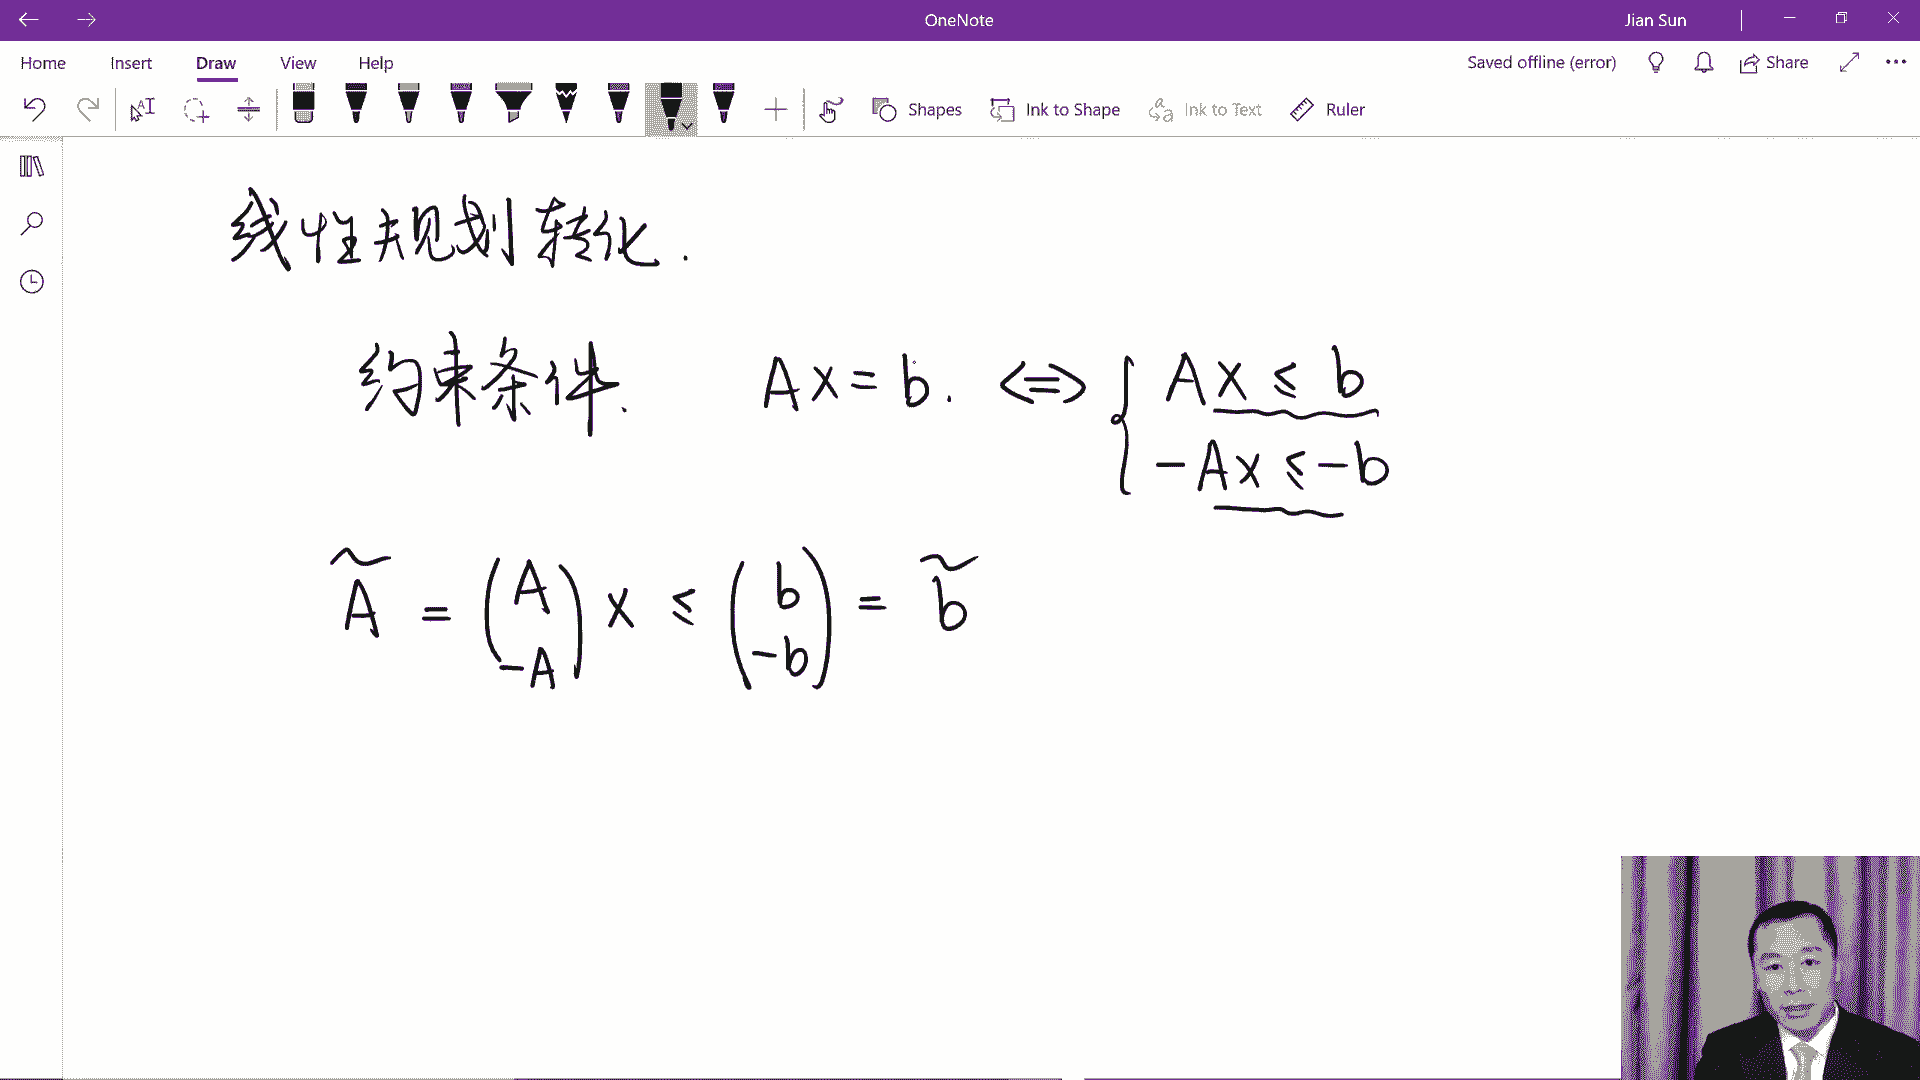 OneNote
Jian Sun
Home Insert Draw View Help
Saved offline (error) Share
Shapes Ink to Shape Ink to Text Ruler
线性规划转化.
约束条件. Ax = b. <=> { Ax ≤ b
-Ax ≤ -b
Ã = (A -A) x ≤ (b -b) = b̃